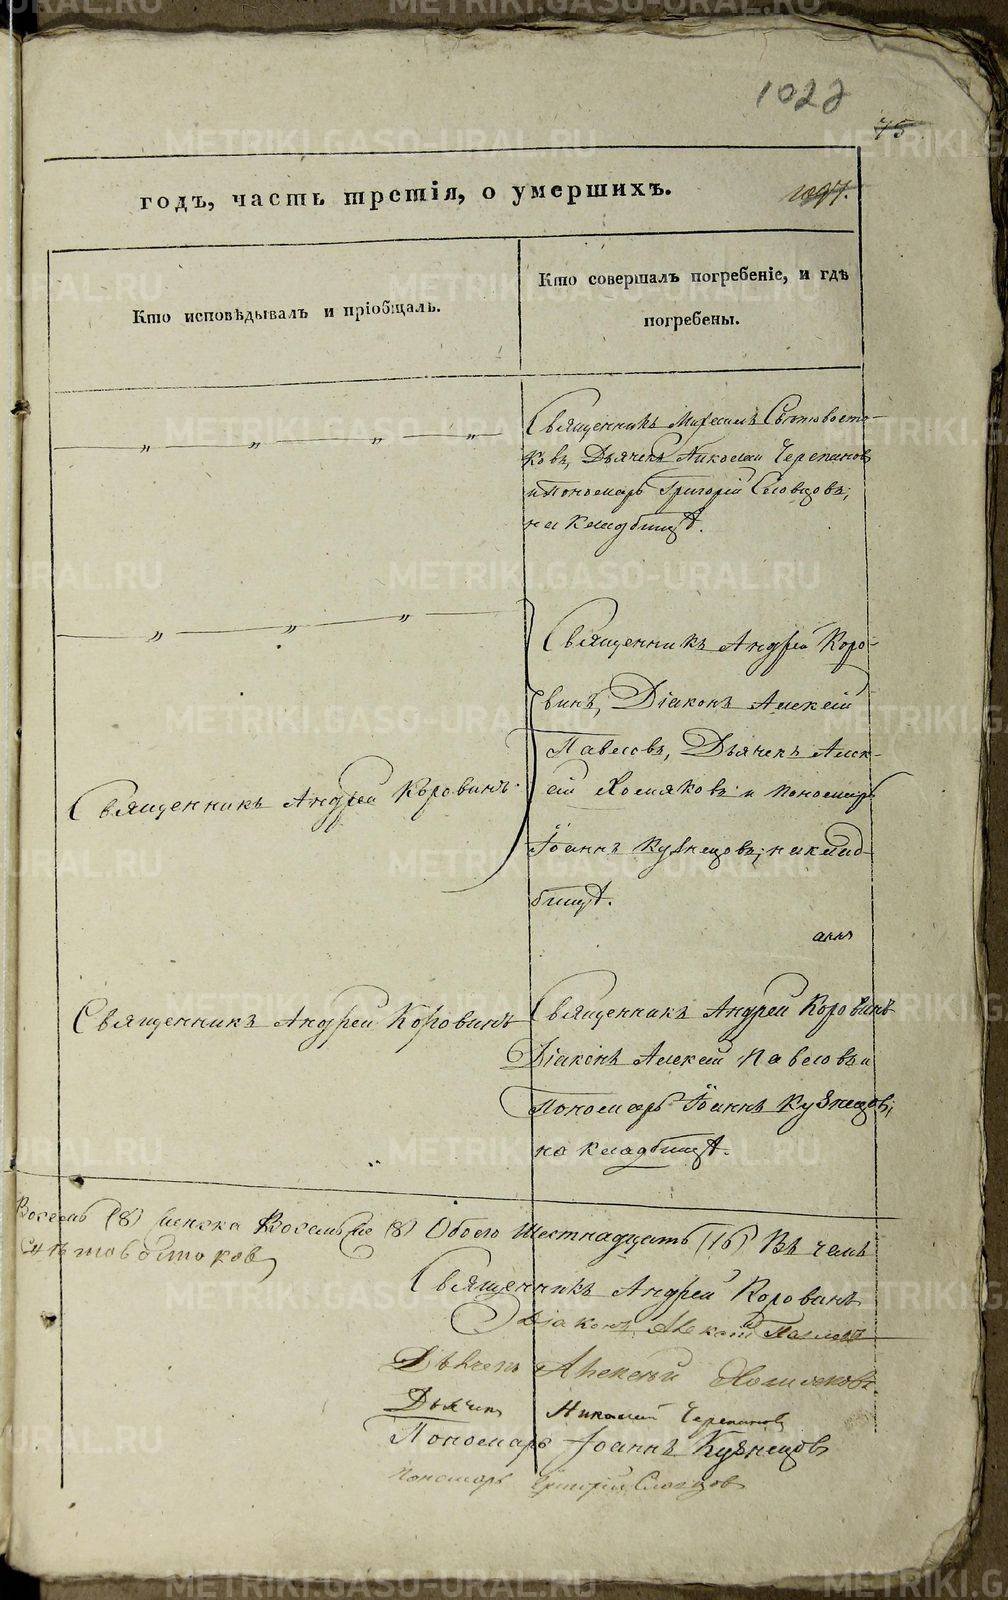 1022
75
годъ, часть третія, о умершихъ.
1097.
Кто исповѣдывалъ и пріобщалъ.
Кто совершалъ погребеніе, и гдѣ
погребены.
Священникъ Свѣтовосто-
ковъ, Дьячекъ Николай Черепановъ
и Пономарь Григорій Словцовъ;
на кладбищѣ.
Священникъ Андрей Коро-
винъ, Діаконъ Алексій
Павловъ, Дьячекъ Алек-
сій Хомяковъ и Пономарь
Іоаннъ Кузнецовъ; на клад-
бищѣ.
Священникъ Андрей Коровинъ
Священникъ Андрей Коровинъ
Священникъ Андрей Коровинъ
Діаконъ Алексій Павловъ и
Пономарь Іоаннъ Кузнецовъ;
на кладбищѣ.
Восемь (8) женска Восемь же (8) Обоего Шестнадцать (16) Въ чемъ
Свѣтовостоковъ
Священникъ Андрей Коровинъ
Діаконъ Алексій Павловъ
Дьячекъ Алексѣй Хомяковъ.
Дьячекъ Николай Черепановъ
Пономарь Іоаннъ Кузнецовъ
Пономарь Григорій Словцовъ
METRIKI.GASO-URAL.RU